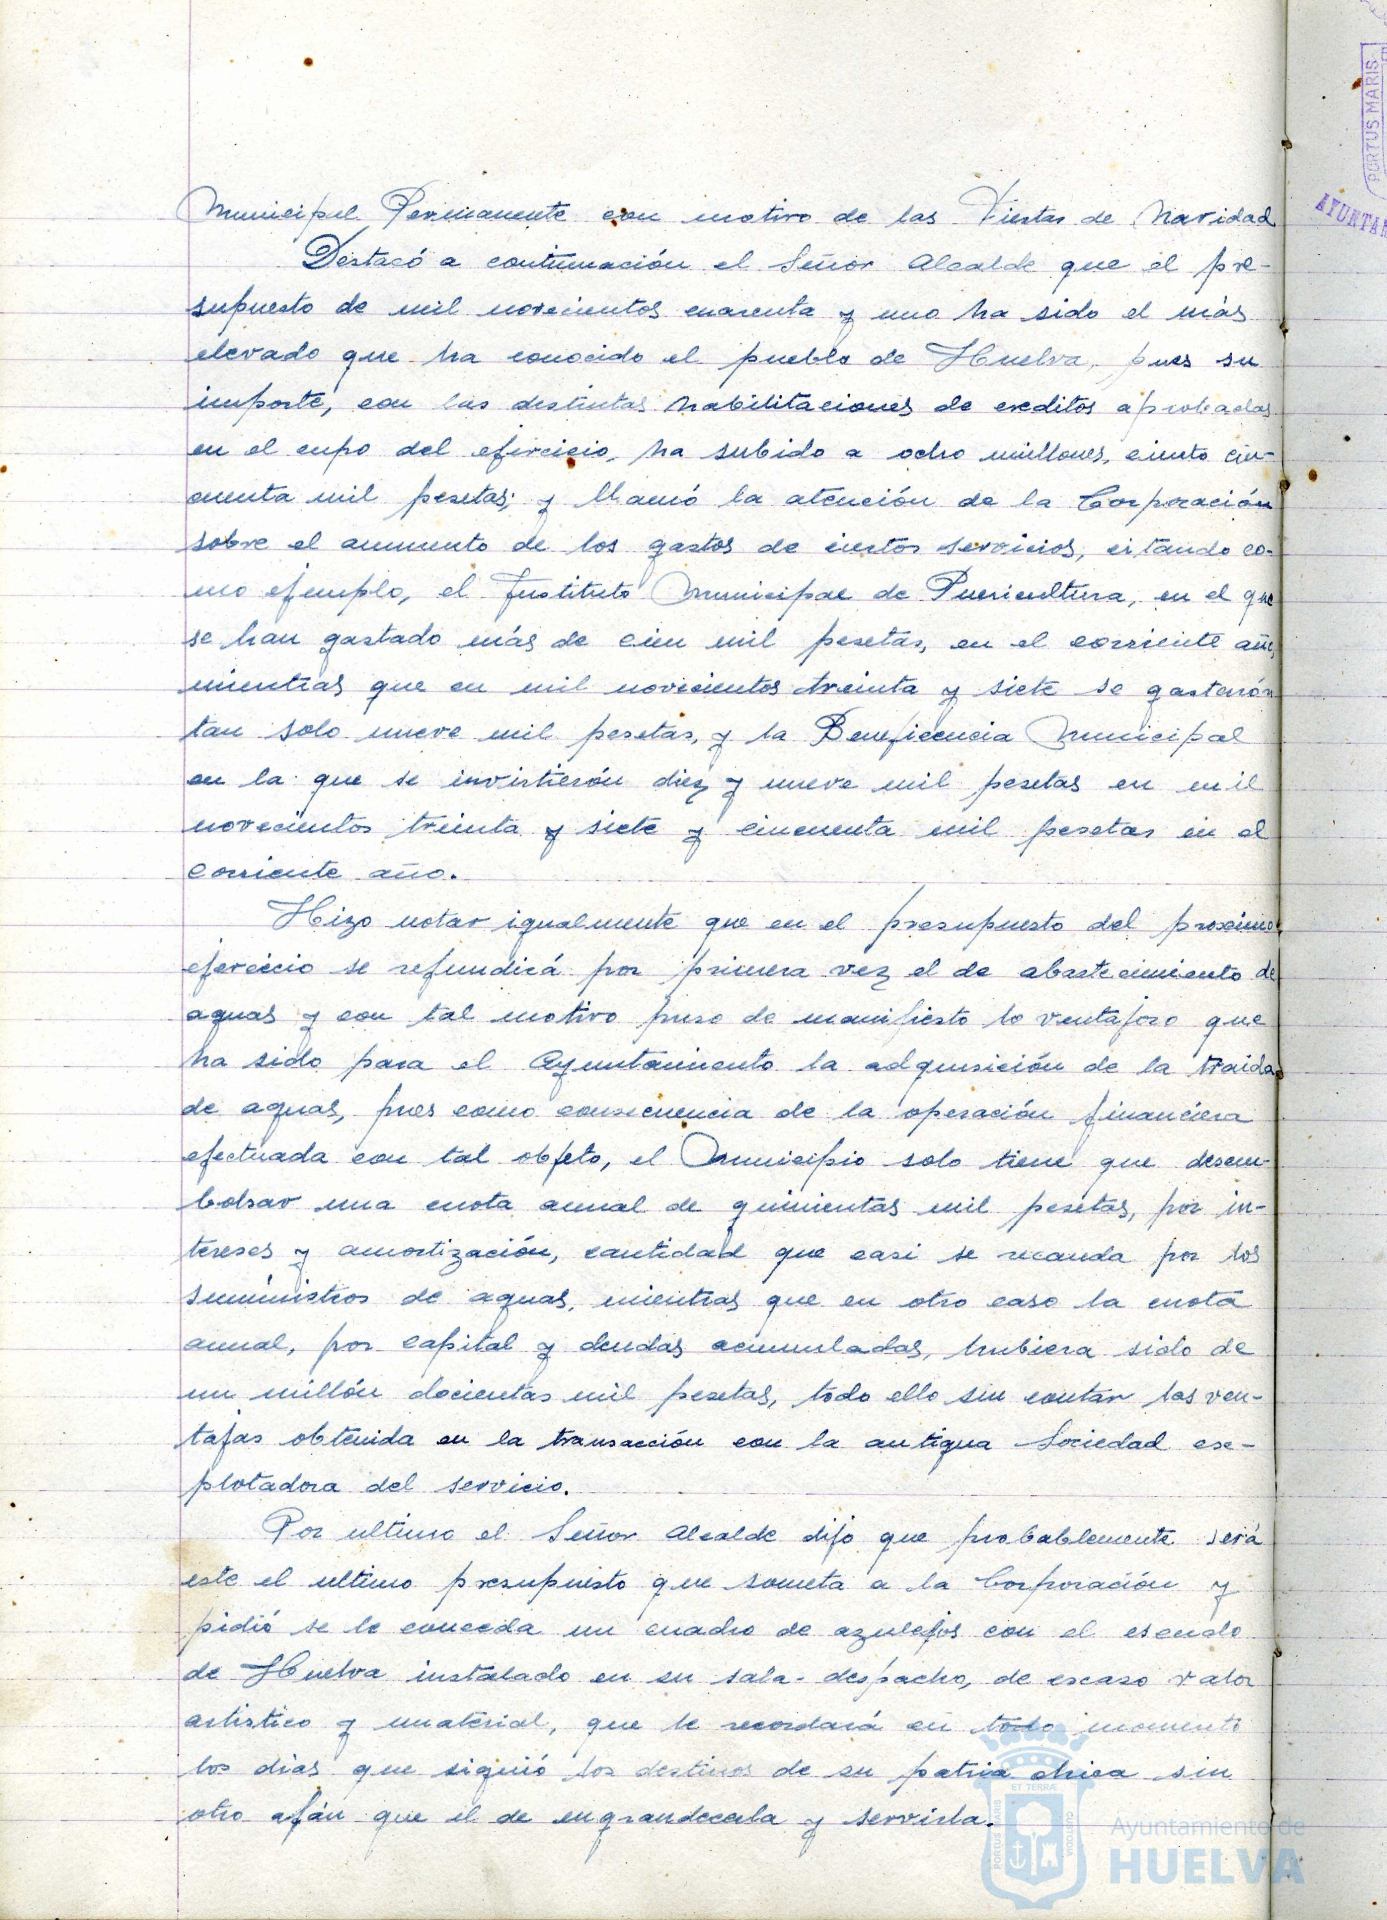 Municipal Permanente con motivo de las Fiestas de Navidad
Destacó a continuación el Señor Alcalde que el pre-
supuesto de mil novecientos cuarenta y uno ha sido el más
elevado que ha conocido el pueblo de Huelva, pues su
importe, con las distintas habilitaciones de creditos aprobadas
en el cupo del ejercicio, ha subido a ocho millones, ciento cin-
cuenta mil pesetas; y llamó la atención de la Corporación
sobre el aumento de los gastos de ciertos servicios, citando co-
mo ejemplo, el Instituto Municipal de Puericultura, en el que
se han gastado más de cien mil pesetas, en el corriente año,
mientras que en mil novecientos treinta y siete se gastarón
tan solo nueve mil pesetas, y la Beneficencia Municipal
en la que se invirtierón diez y nueve mil pesetas en mil
novecientos treinta y siete y cincuenta mil pesetas en el
corriente año.
Hizo notar igualmente que en el presupuesto del proximo
ejercicio se refundirá por primera vez el de abastecimiento de
aguas y con tal motivo puso de manifiesto lo ventajoso que
ha sido para el Ayuntamiento la adquisición de la traida
de aguas, pues como consecuencia de la operación financiera
efectuada con tal objeto, el Municipio solo tiene que desem-
bolsar una cuota anual de quinientas mil pesetas, por in-
tereses y amortización, cantidad que casi se recauda por los
suministros de aguas, mientras que en otro caso la cuota
anual, por capital y deudas acumuladas, hubiera sido de
un millón docientas mil pesetas, todo ello sin contar las ven-
tajas obtenida en la transacción con la antigua Sociedad ex-
plotadora del servicio.
Por ultimo el Señor Alcalde dijo que probablemente será
este el ultimo presupuesto que someta a la Corporación y
pidió se le conceda un cuadro de azulejos con el escudo
de Huelva instalado en su sala-despacho, de escaso valor
artistico y material, que le recordará en todo momento
los dias que siguió los destinos de su patria chica sin
otro afán que el de engrandecerla y servirla.
PORTUS MARIS
AYUNTAM
ET TERRÆ
PORTUS MARIS
CUSTODIA
Ayuntamiento de
HUELVA